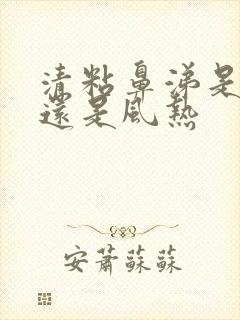 清粘鼻涕是
還是風熱
安蕭蘇蘇